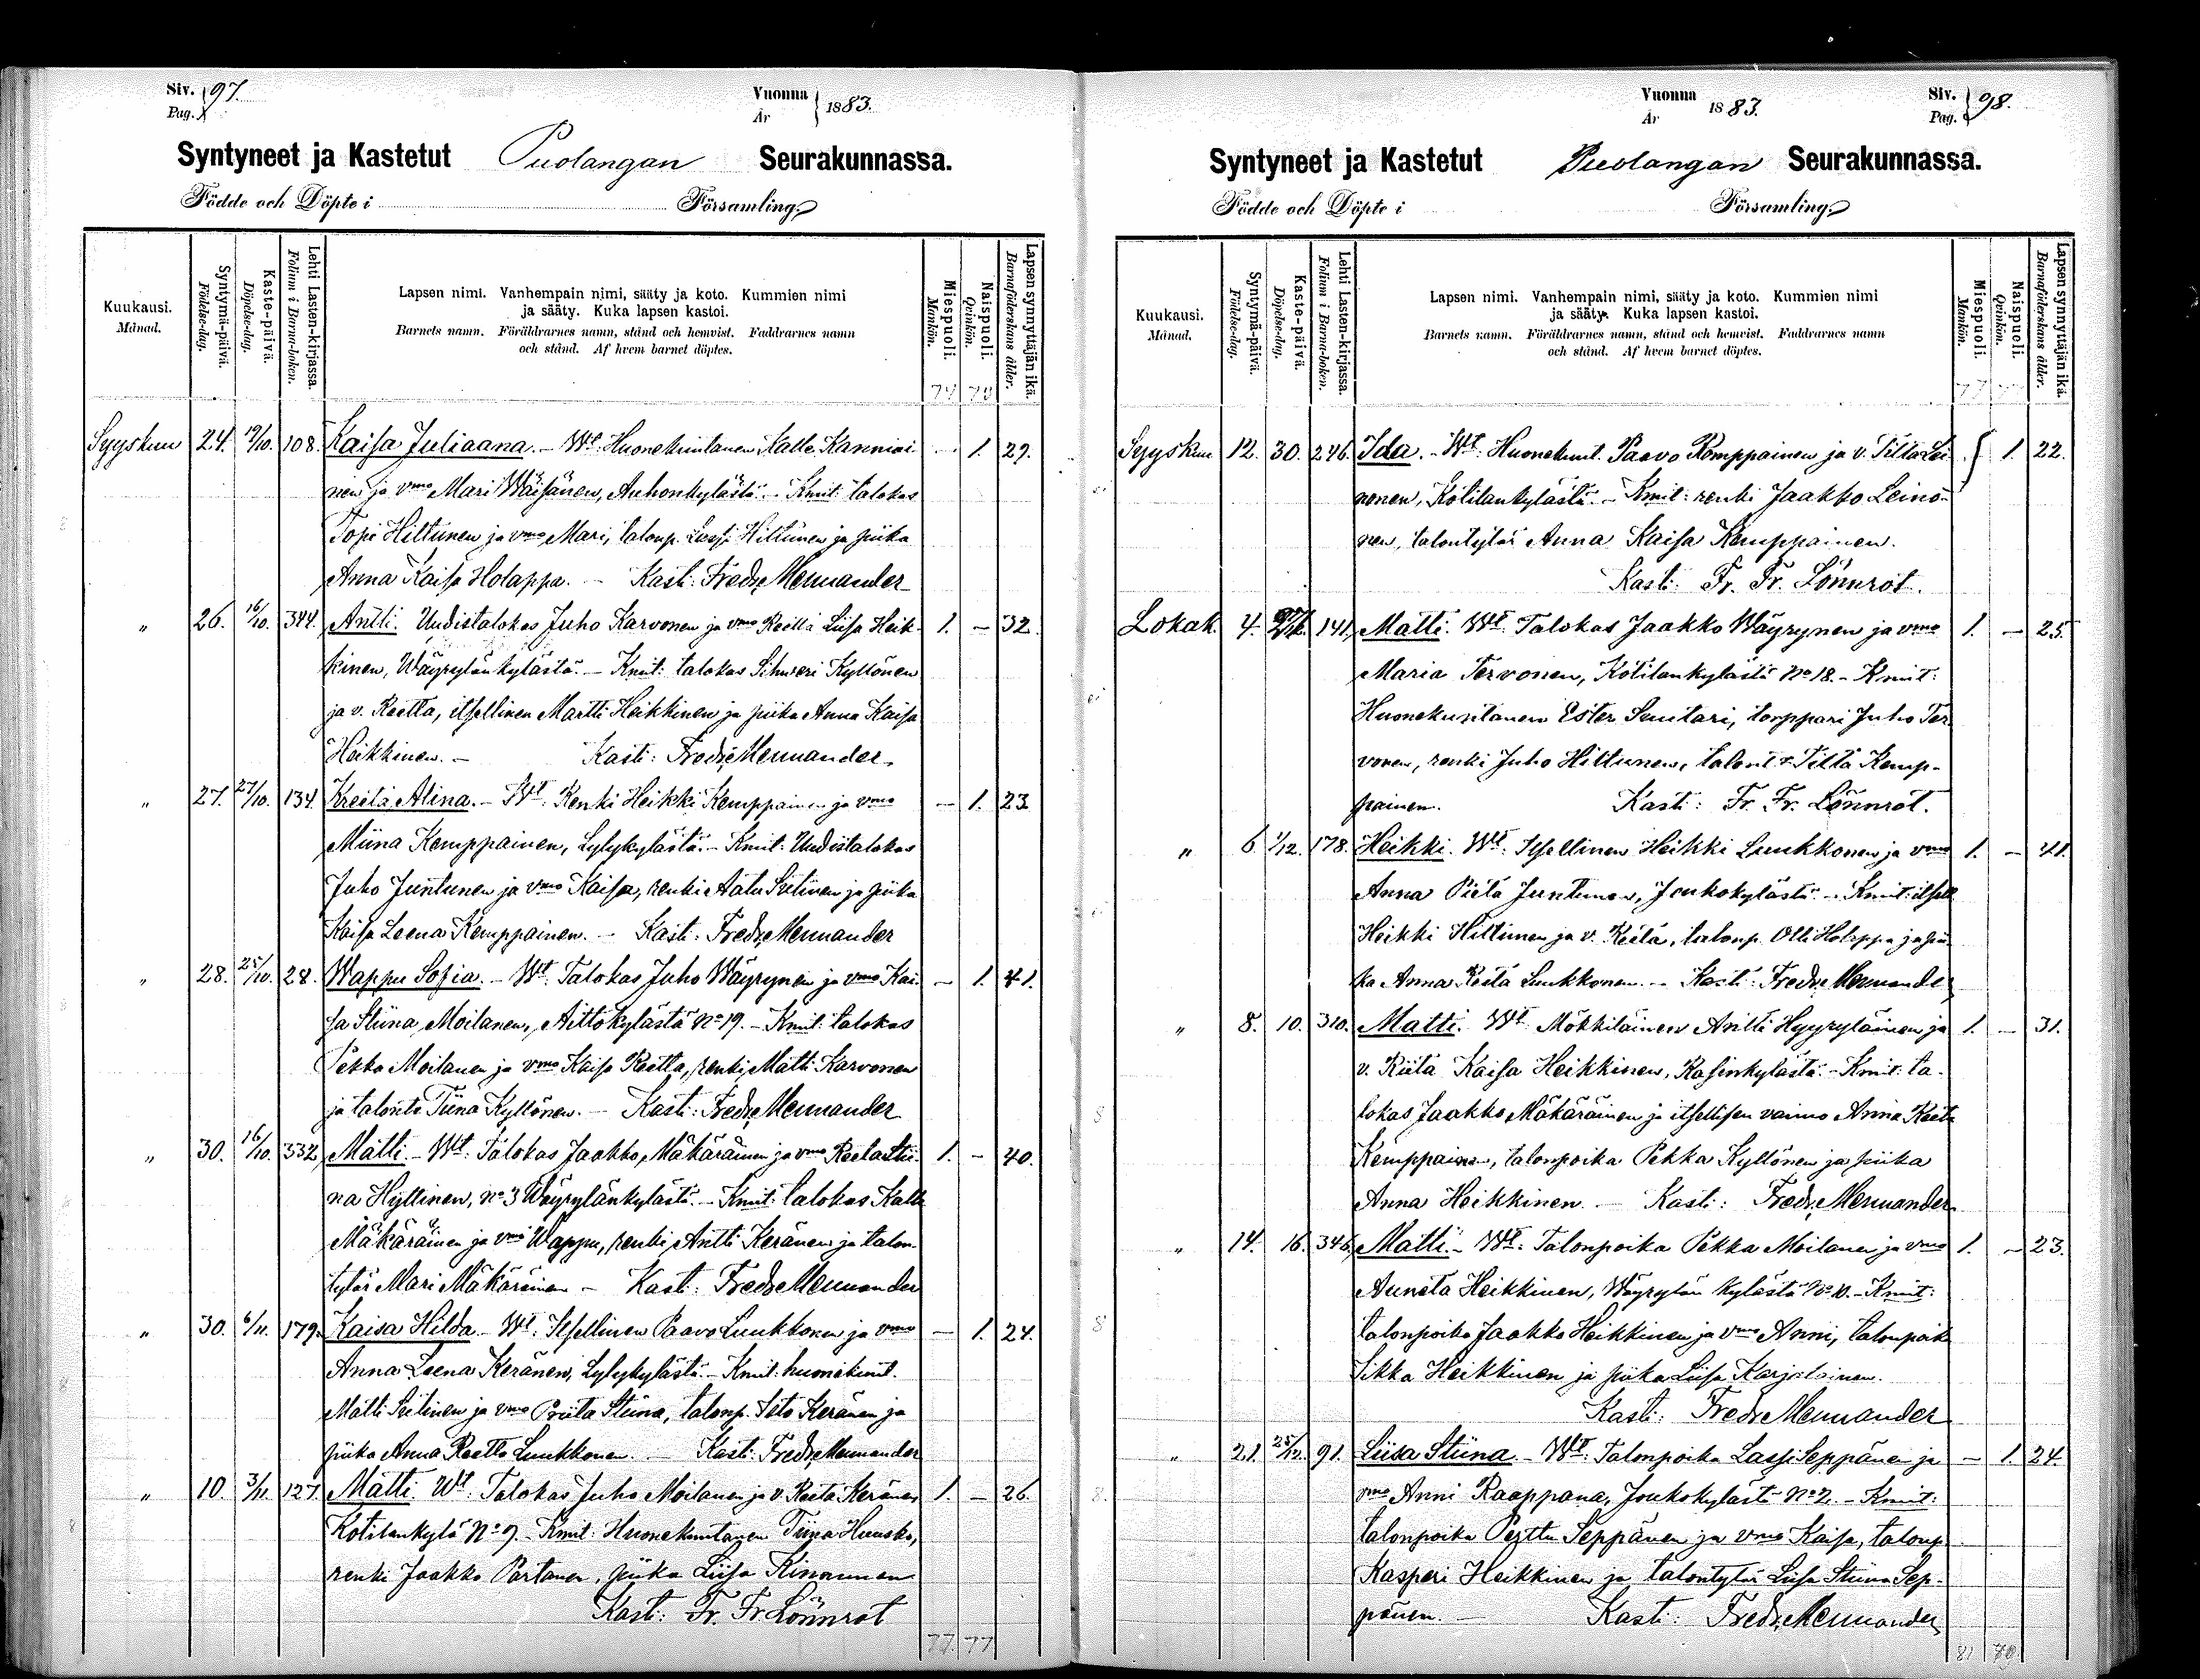 Siv. 97.
Pag.
Vuonna 1883.
År
Syntyneet ja Kastetut Puolangan Seurakunnassa.
Födde och Döpte i Församling.
Kuukausi.
Månad.
Syntymä-päivä.
Födelse-dag.
Kaste-päivä.
Döpelse-dag.
Lehti Lasten-kirjassa.
Folium i Barna-boken.
Lapsen nimi. Vanhempain nimi, sääty ja koto. Kummien nimi
ja sääty. Kuka lapsen kastoi.
Barnets namn. Föräldrarnes namn, stånd och hemvist. Faddrarnes namn
och stånd. Af hvem barnet döptes.
Miespuoli.
Mankön.
Naispuoli.
Qvinkön.
Lapsen synnyttäjän ikä.
Barnaföderskans ålder.
Syyskuu 24. 19/10. 108. Kaisa Juliaana. – Wt. Huonekuntanen Kalle Kanniai- 1. 29.
nen ja vmo Mari Wäisänen, Auhonkylästä. – Kmit: talokas
Topi Hiltunen ja vmo Mari, talonp. Lassi Hiltunen ja piika
Anna Kaisa Holappa. – Kasti: Fredr. Mennander
" 26. 16/10. 344. Antti. Uudistalokas Juho Karvonen ja vmo Reetta Liisa Heik- 1. – 32.
kinen, Wäyrylänkylästä. – Kmit: talokas Sihveri Kyllönen
ja v. Reetta, itsellinen Martti Heikkinen ja piika Anna Kaisa
Heikkinen. – Kasti: Fredr. Mennander.
" 27. 27/10. 134. Kreeta Alina. – Wt. Renki Heikki Kemppainen ja vmo – 1. 23.
Miina Kemppainen, Lylykylästä. – Kmit: Uudistalokas
Juho Juntunen ja vmo Kaisa, renki Aatu Seitinen ja piika
Kaisa Leena Kemppainen. – Kasti: Fredr. Mennander
" 28. 25/10. 28. Wappu Sofia. – Wt. Talokas Juho Wäyrynen ja vmo Kai- – 1. 41.
sa Stiina Moilanen, Aittokylästä No 19. – Kmit: talokas
Pekka Moilanen ja vmo Kaisa Reetta, renki Matti Karvonen
ja talont. Tiina Kyllönen. – Kasti: Fredr. Mennander
" 30. 16/10. 332. Matti. – Wt. Talokas Jaakko Mäkäräinen ja vmo Reeta Stii- 1. – 40.
na Hyttinen, No 3 Wäyrylänkylästä. – Kmit: talokas Kalle
Mäkäräinen ja vmo Wappu, renki Antti Keränen ja talon-
tytär Mari Mäkäräinen – Kasti: Fredr. Mennander
" 30. 6/11. 179. Kaisa Hilda. – Wt. Itsellinen Paavo Luukkonen ja vmo – 1. 24.
Anna Leena Keränen, Lylykylästä. – Kmit: huonekunt.
Matti Seitinen ja vmo Priita Stiina, talonp. Keränen ja
piika Anna Reetta Luukkonen. – Kasti: Fredr. Mennander
" 10. 3/11. 127. Matti. Wt. Talokas Juho Moilanen ja v. Reeta Keränen 1. – 26.
Kotilankylä No 9. – Kmit: Huonekuntanen Tiina Huusko,
renki Jaakko Partanen, piika Liisa Kinnunen
Kast: Fr. Fr. Lönnrot
77. 77
Vuonna 1883.
År
Siv. 98.
Pag.
Syntyneet ja Kastetut Puolangan Seurakunnassa.
Födde och Döpte i Församling.
Kuukausi.
Månad.
Syntymä-päivä.
Födelse-dag.
Kaste-päivä.
Döpelse-dag.
Lehti Lasten-kirjassa.
Folium i Barna-boken.
Lapsen nimi. Vanhempain nimi, sääty ja koto. Kummien nimi
ja sääty. Kuka lapsen kastoi.
Barnets namn. Föräldrarnes namn, stånd och hemvist. Faddrarnes namn
och stånd. Af hvem barnet döptes.
Miespuoli.
Mankön.
Naispuoli.
Qvinkön.
Lapsen synnyttäjän ikä.
Barnaföderskans ålder.
Syyskuu 12. 30. 246. Ida. – Wt. Huonekunt. Paavo Komppainen ja v. Tilta Lei- 1. 22.
nonen, Kotilankylästä. – Kmit: renki Jaakko Leino-
nen, talontytär Anna Kaisa Kemppainen.
Kasti: Fr. Fr. Lönnrot.
Lokak. 4. 141. Matti. Wt. Talokas Jaakko Wäyrynen ja vmo 1. – 25.
Maria Tervonen, Kotilankylästä No 18. – Kmit:
Huonekuntanen Ester Suutari, torppari Juho Ter-
vonen, renki Juho Hiltunen, talont. Tilta Kemp-
painen. Kasti: Fr. Fr. Lönnrot.
" 6. 1/12. 178. Heikki. Wt. Itsellinen Heikki Luukkonen ja vmo 1. – 41.
Anna Pieta Juntunen, Joukokylästä. – Kmit: itsell
Heikki Hiltunen ja v. Reeta, talonp. Olli Holappa ja pii-
ka Anna Reeta Luukkonen. – Kasti: Fredr. Mennander
" 8. 10. 310. Matti. Wt. Mökkiläinen Antti Hyyryläinen ja 1. – 31.
v. Riita Kaisa Heikkinen, Rasinkylästä. – Kmit: ta-
lokas Jaakko Mäkäräinen ja itsellisen vaimo Anna Reeta
Kemppainen, talonpoika Pekka Kyllönen ja piika
Anna Heikkinen. – Kasti: Fredr. Mennander
" 14. 16. 346. Matti. – Wt. Talonpoika Pekka Moilanen ja vmo 1. – 23.
Auneta Heikkinen, Wäyrylän kylästä No 10. – Kmit:
talonpoika Jaakko Heikkinen ja vmo Anni, talonpoik
Sikka Heikkinen ja piika Liisa Karjalainen.
Kasti: Fredr. Mennander
" 21. 25/12. 91. Liisa Stiina. – Wt. Talonpoika Lassi Seppänen ja – 1. 24.
vmo Anni Raappana, Joukokyläst No 2. – Kmit:
talonpoika Perttu Seppänen ja vmo Kaisa, talonp
Kasperi Heikkinen ja talontytär Liisa Stiina Sep-
pänen. – Kasti: Fredr. Mennander
81